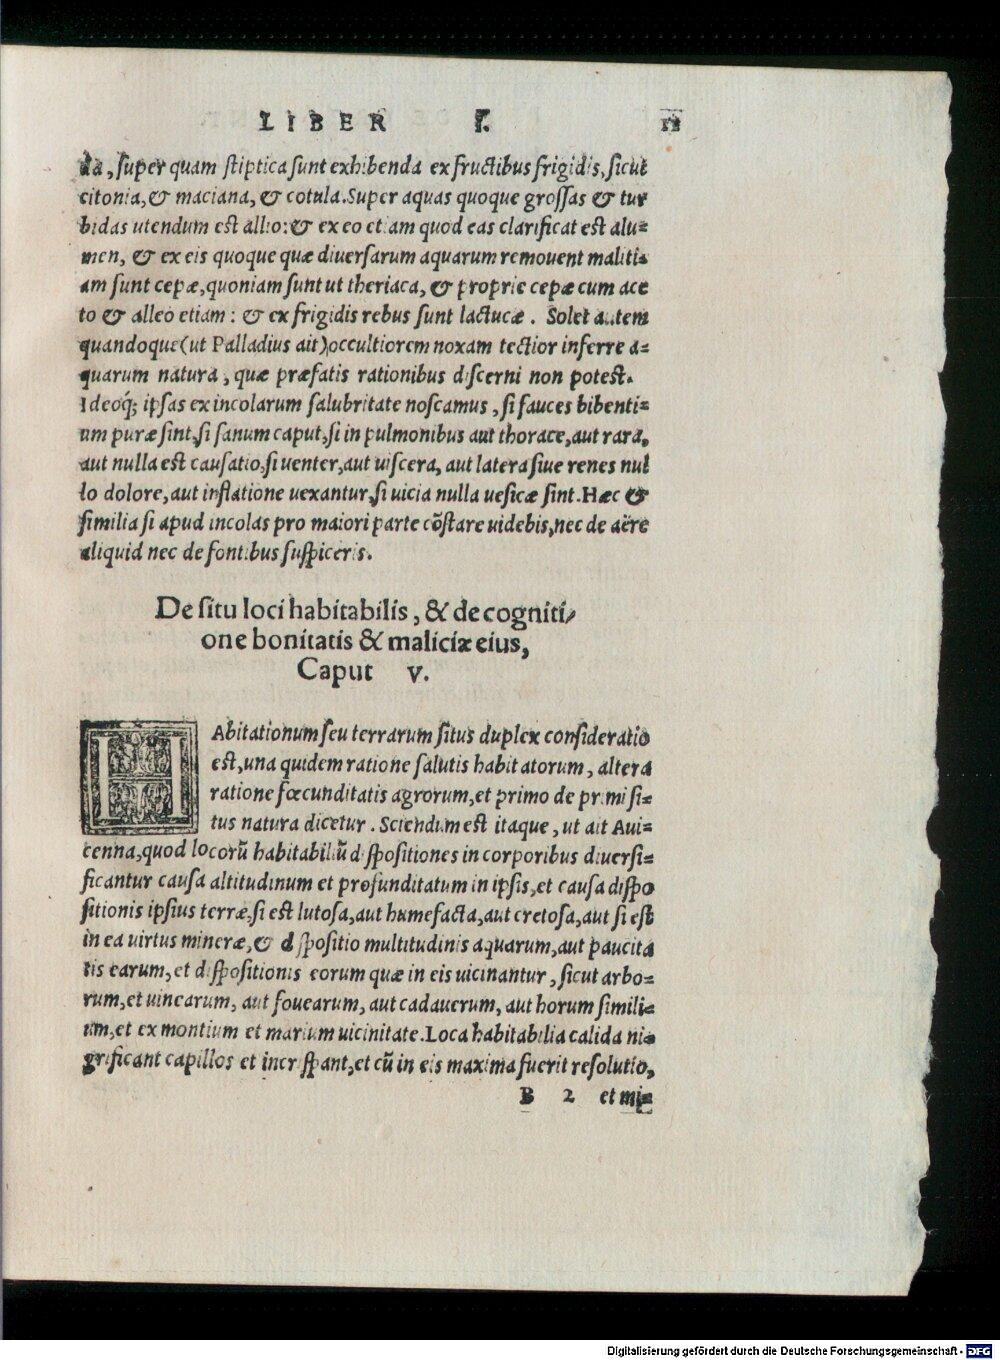 LIBER I.
da, super quam stiptica sunt exhibenda ex fructibus frigidis, sicut
citonia, & maciana, & cotula. Super aquas quoque grossas & tur
bidas utendum est allio: & ex eo etiam quod eas clarificat est alu=
men, & ex eis quoque quæ diuersarum aquarum remouent maliti=
am sunt cepæ, quoniam sunt ut theriaca, & proprie cepæ cum ace
to & alleo etiam: & ex frigidis rebus sunt lactucæ. Solet autem
quandoque (ut Palladius ait) occultiorem noxam tectior inferre a=
quarum natura, quæ præfatis rationibus discerni non potest.
Ideoq́; ipsas ex incolarum salubritate noscamus, si fauces bibenti=
um puræ sint, si sanum caput, si in pulmonibus aut thorace, aut rara,
aut nulla est causatio, si uenter, aut uiscera, aut latera siue renes nul
lo dolore, aut inflatione uexantur, si uicia nulla uesicæ sint. Hæc &
similia si apud incolas pro maiori parte cõstare uidebis, nec de aëre
aliquid nec de fontibus suspiceris.
De situ loci habitabilis, & de cogniti/
one bonitatis & maliciæ eius,
Caput v.
HAbitationum seu terrarum situs duplex consideratio
est, una quidem ratione salutis habitatorum, altera
ratione fœcunditatis agrorum, et primo de primi si=
tus natura dicetur. Sciendum est itaque, ut ait Aui=
cenna, quod locorũ habitabiliũ dispositiones in corporibus diuersi=
ficantur causa altitudinum et profunditatum in ipsis, et causa dispo
sitionis ipsius terræ, si est lutosa, aut humefacta, aut cretosa, aut si est
in ea uirtus mineræ, & dispositio multitudinis aquarum, aut paucita
tis earum, et dispositionis eorum quæ in eis uicinantur, sicut arbo=
rum, et uinearum, aut fouearum, aut cadauerum, aut horum simili=
um, et ex montium et marium uicinitate. Loca habitabilia calida ni=
grificant capillos et incrispant, et cũ in eis maxima fuerit resolutio,
B 2 et mi=
Digitalisierung gefördert durch die Deutsche Forschungsgemeinschaft - DFG